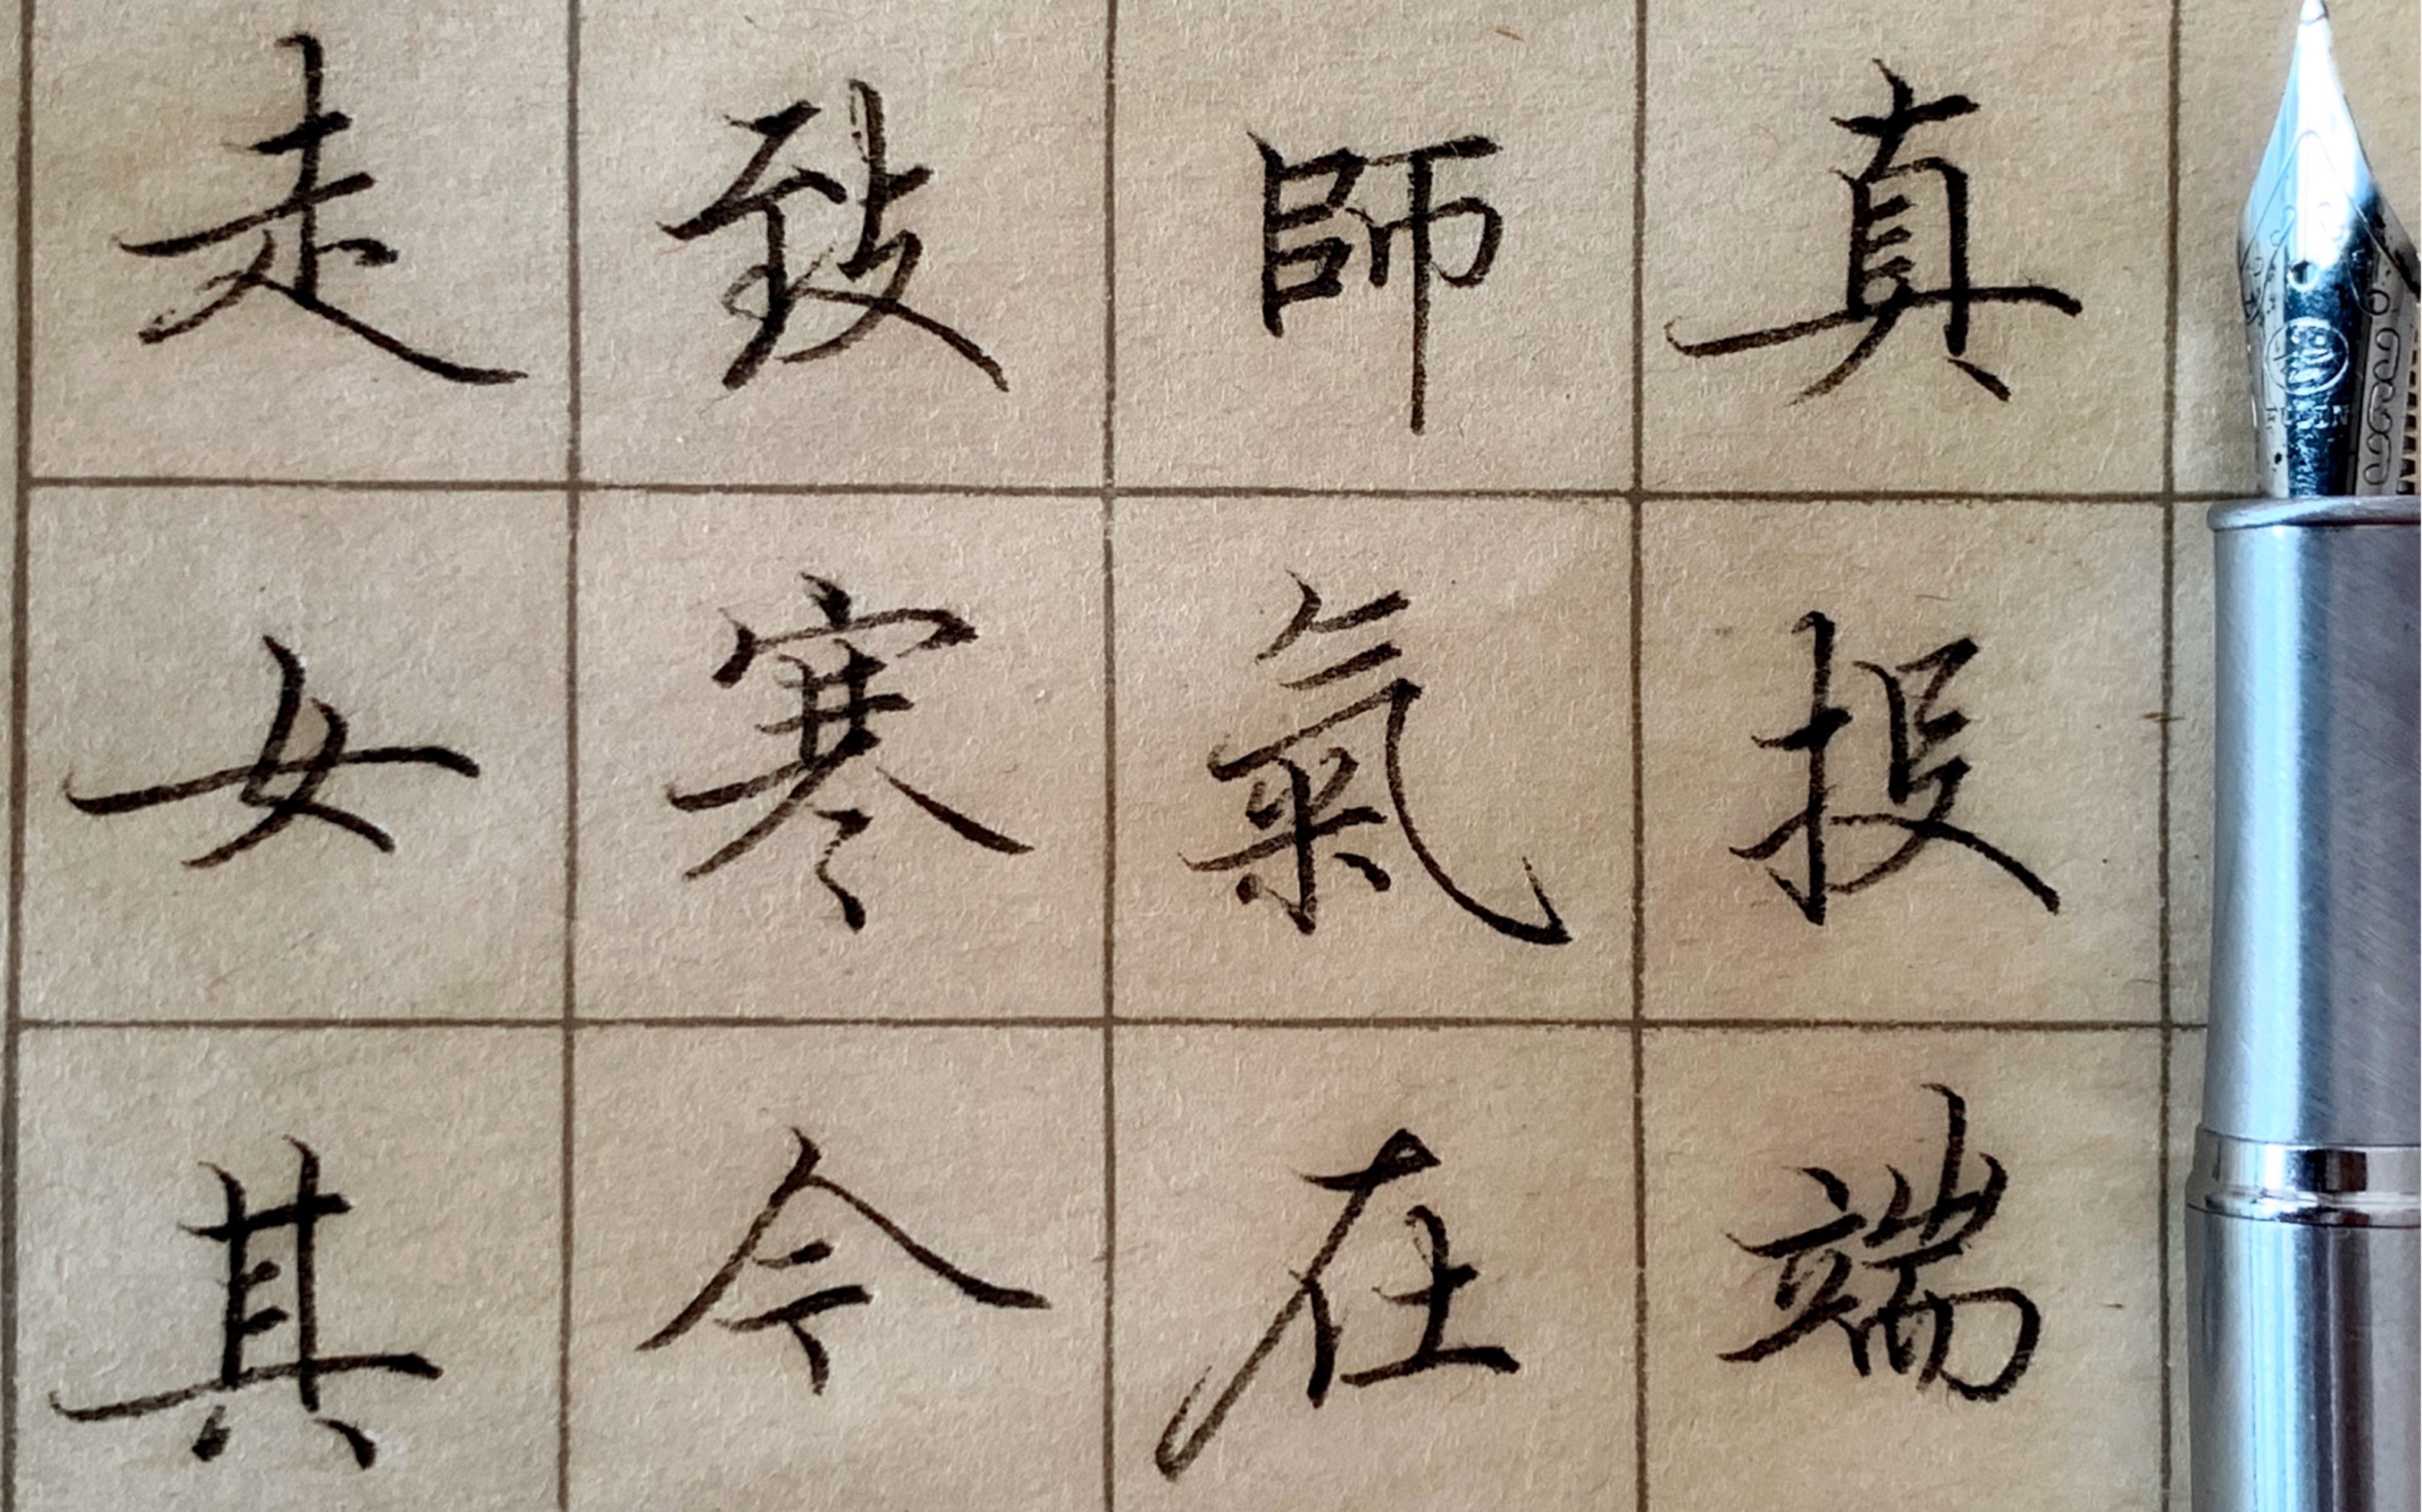 真投端
師氣在
致寒今
走女其